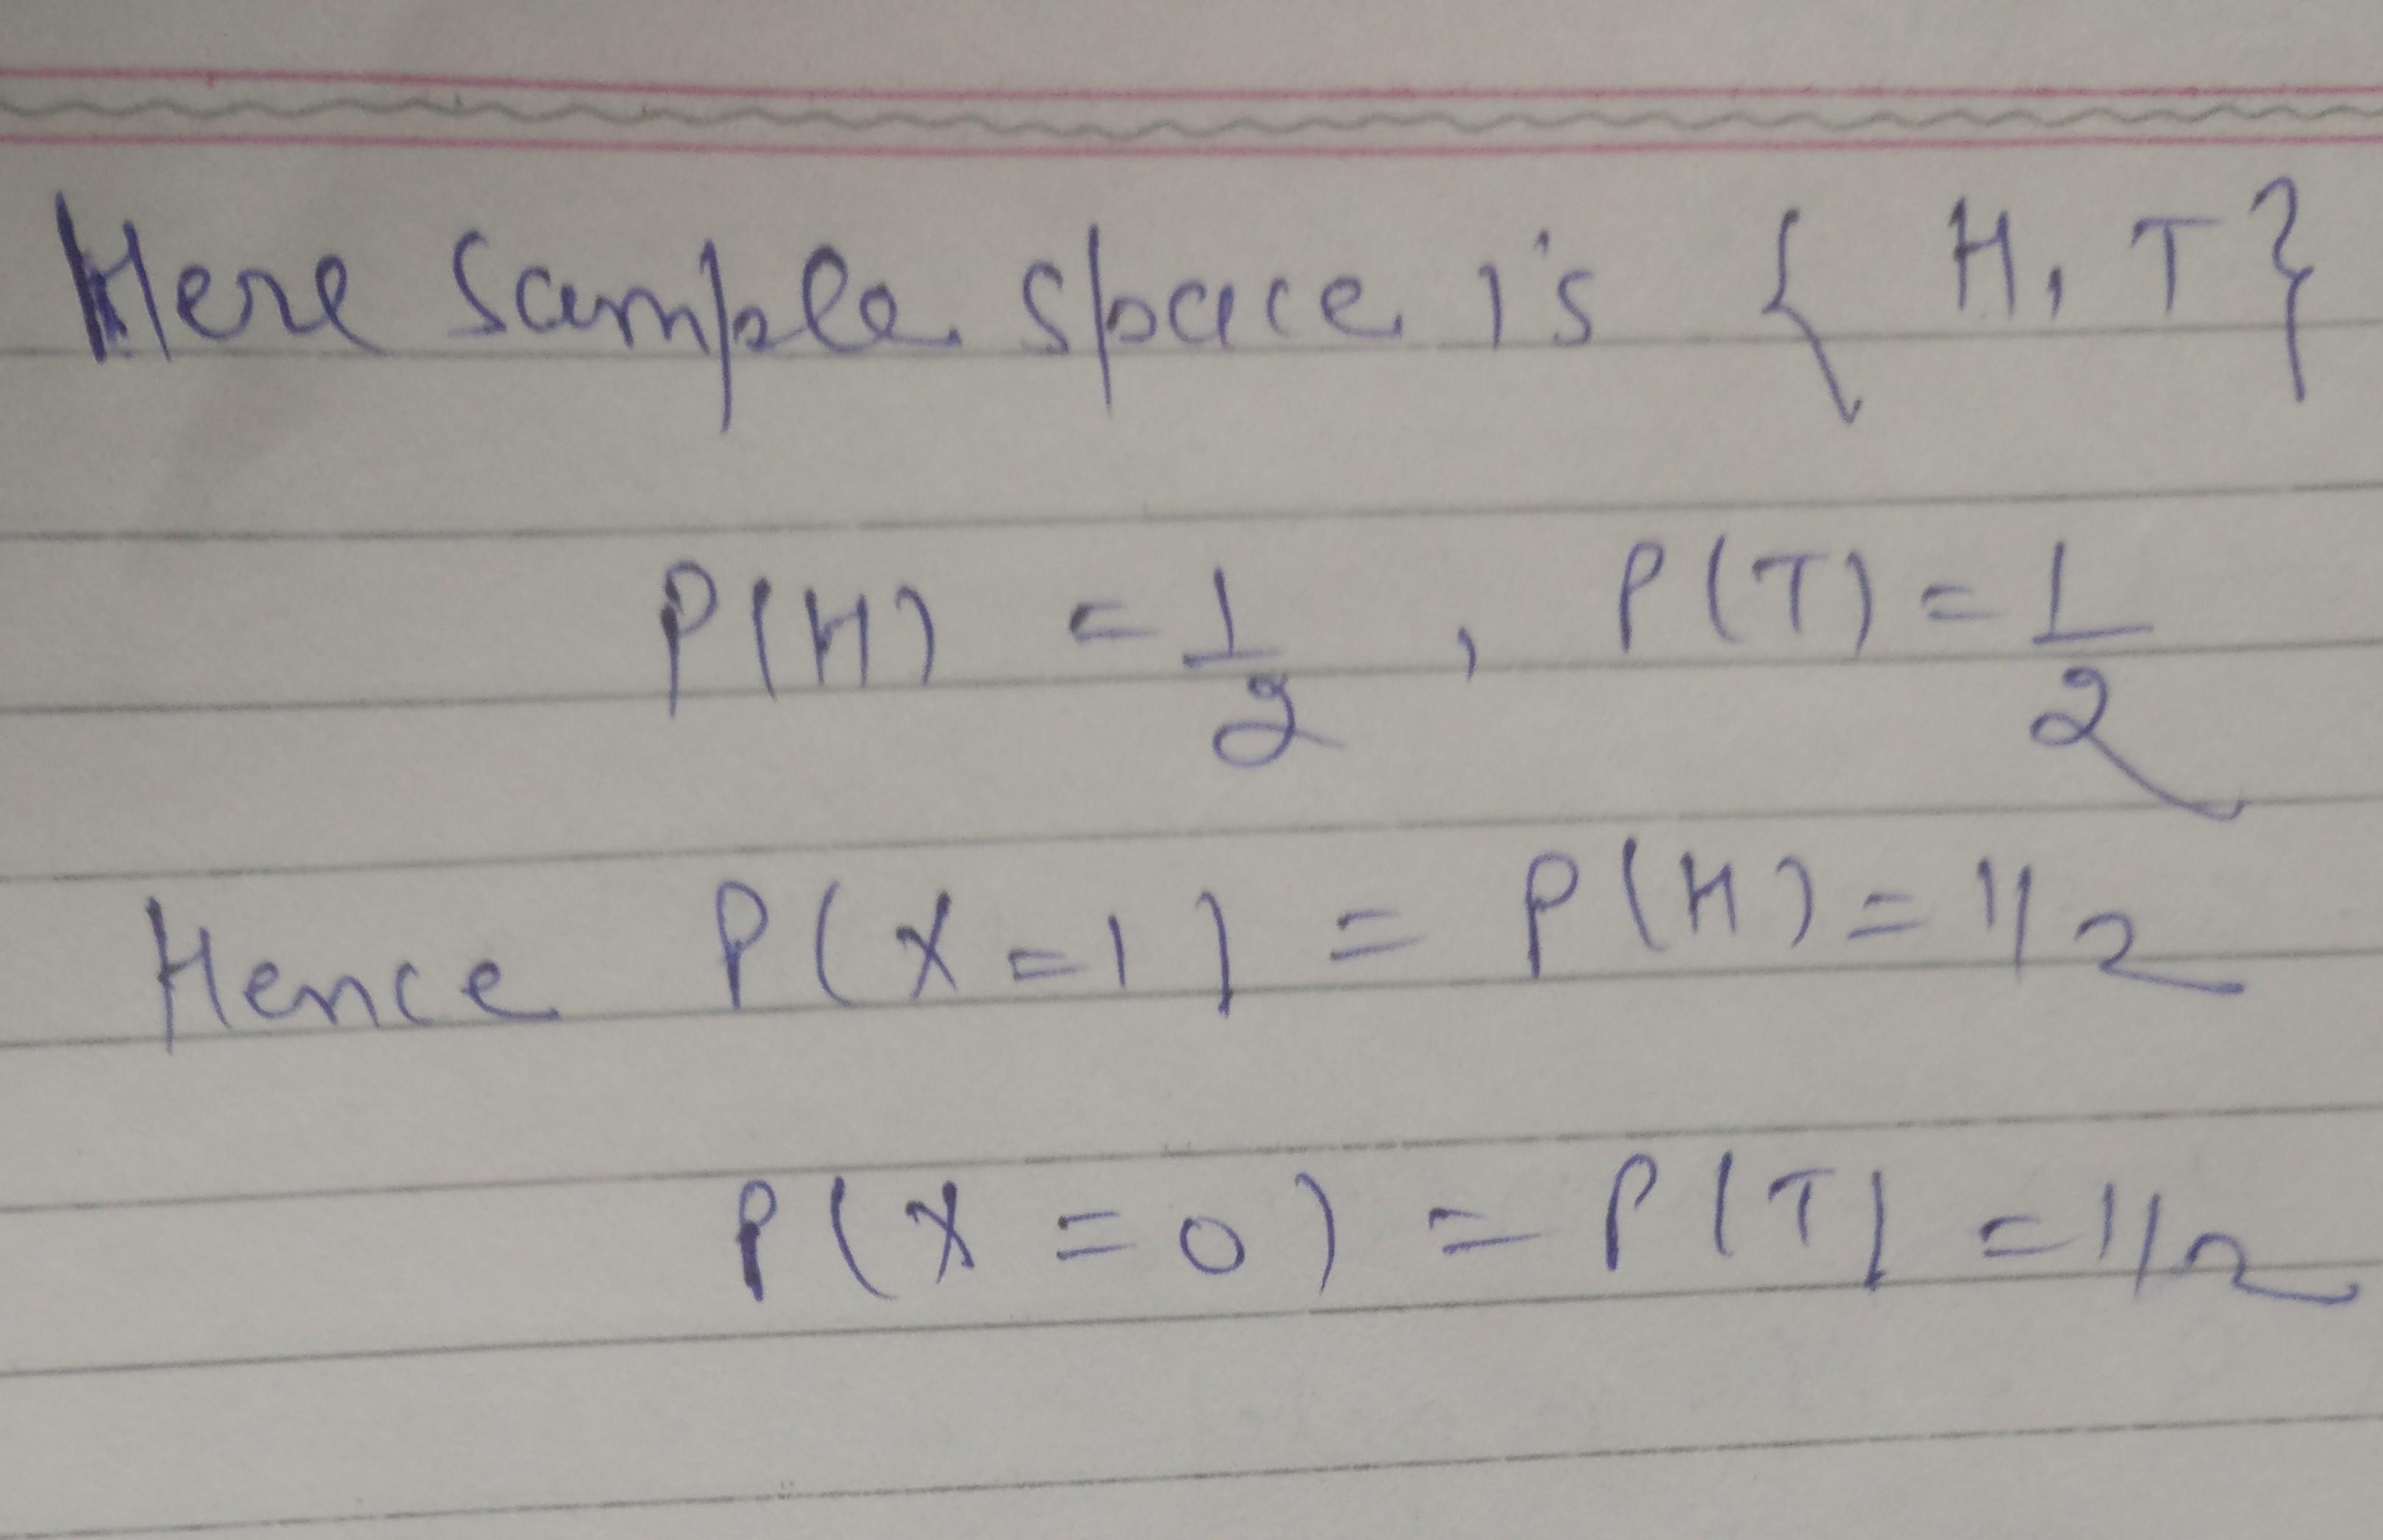 Here sample space is { H, T }
P(H) = 1/2 , P(T) = 1/2
Hence P(X=1) = P(H) = 1/2
P(X=0) = P(T) = 1/2